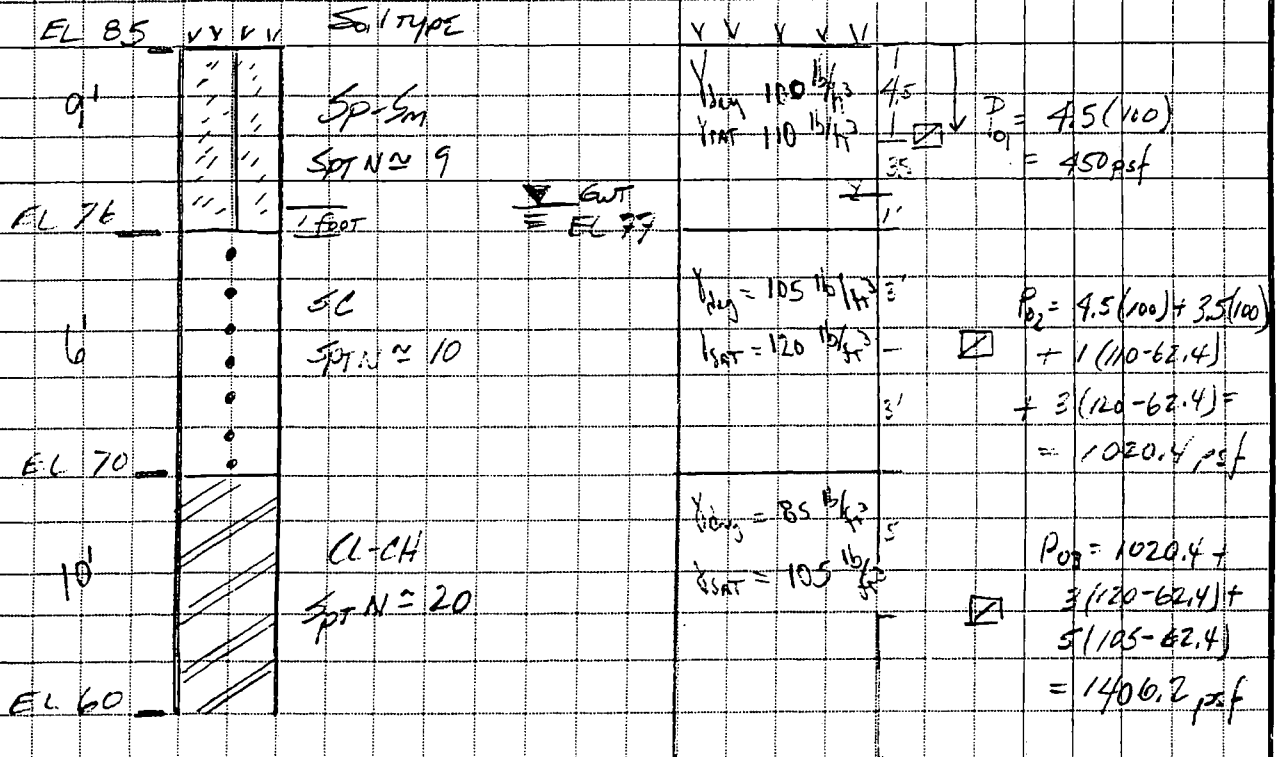 EL 85
Soil TYPE
9'
SP-Sm
SPT N ≃ 9
EL 76
1 FOOT
GWT
EL 77
6'
SC
SPT N ≃ 10
EL 70
10'
CL-CH
SPT N ≃ 20
EL 60
γdry 100 lb/ft³
γSAT 110 lb/ft³
4.5
3.5
1'
γdry = 105 lb/ft³
γSAT = 120 lb/ft³
3'
3'
γdry = 85 lb/ft³
γSAT = 105 lb/ft³
5
P01 = 4.5(100)
= 450 psf
P02 = 4.5(100) + 3.5(100)
+ 1(110-62.4)
+ 3(120-62.4) =
= 1020.4 psf
P03 = 1020.4 +
3(120-62.4) +
5(105-62.4)
= 1406.2 psf